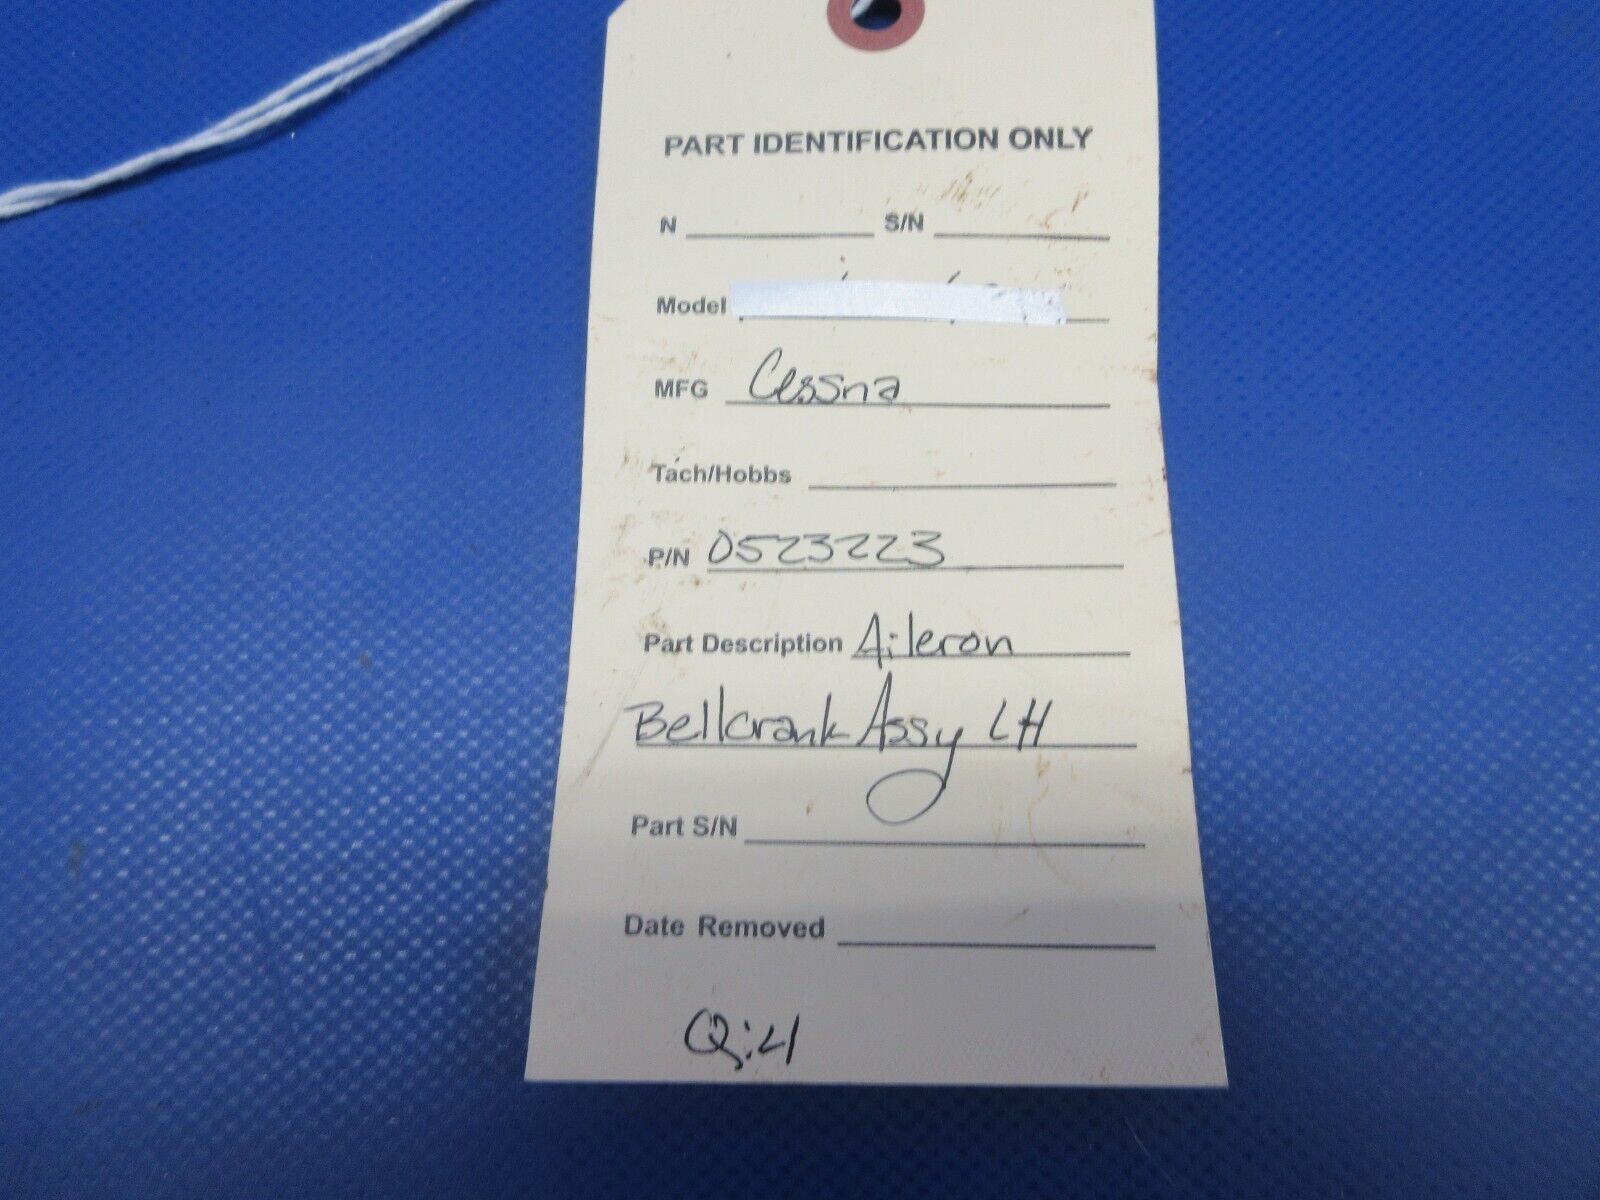 PART IDENTIFICATION ONLY
N S/N
Model
MFG Cessna
Tach/Hobbs
P/N 0523223
Part Description Aileron
Bellcrank Assy LH
Part S/N
Date Removed
Q:4